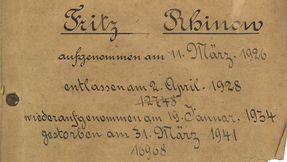 Fritz Rhinow
aufgenommen am 11. März. 1926
entlassen am 2. April. 1928
12748
wiederaufgenommen am 19. Januar. 1934
gestorben am 31. März 1941
16968